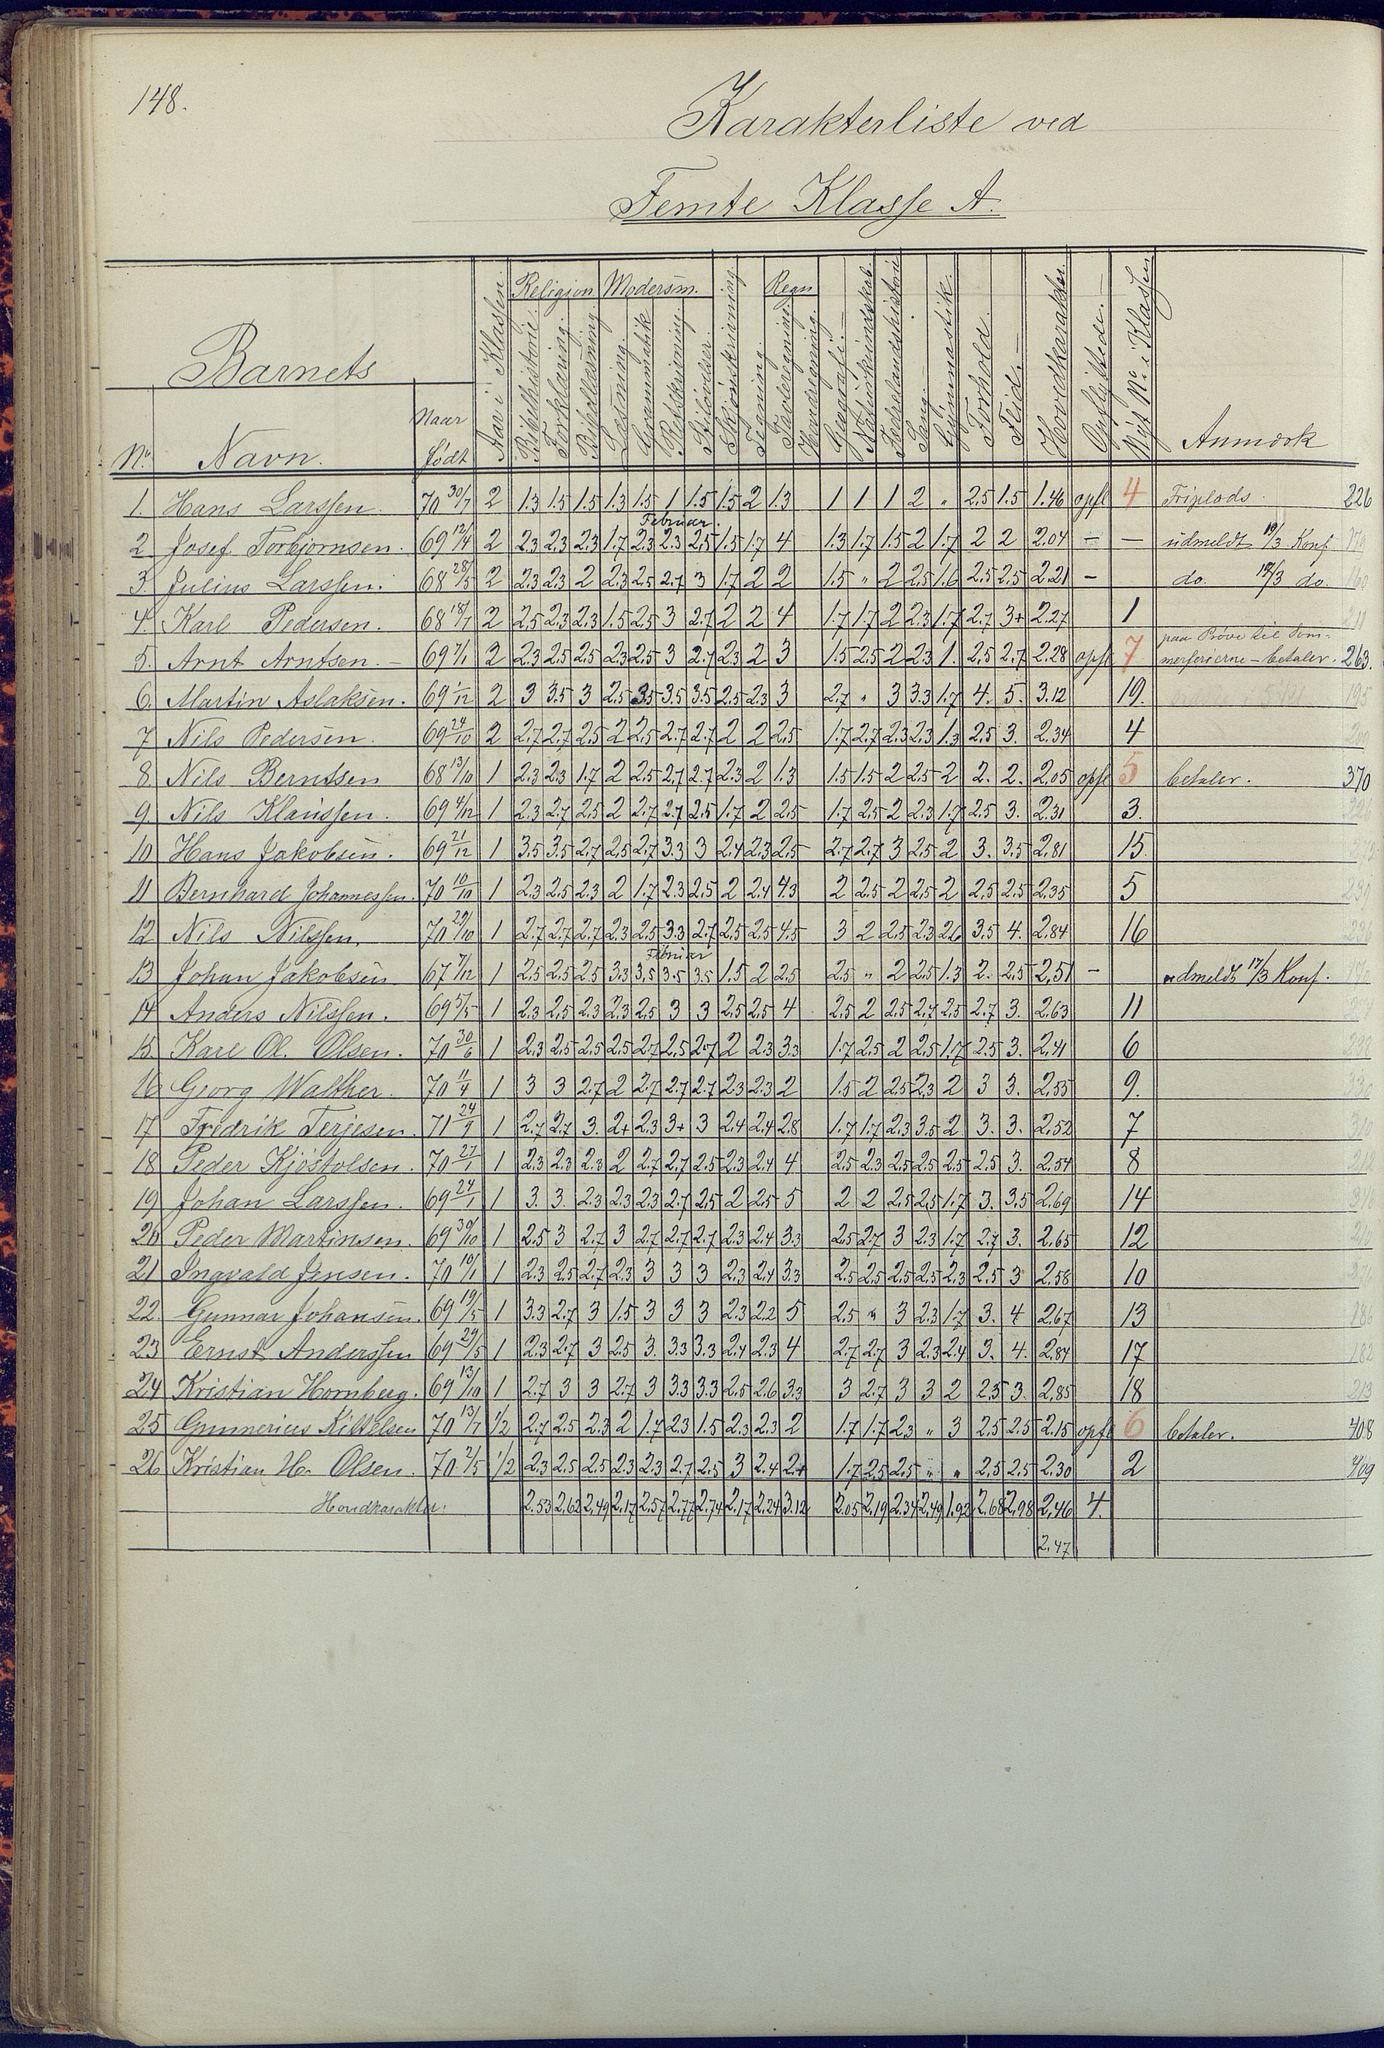 148.
Karakterliste ved
Femte Klasse A.
No. Barnets Navn. Naar Født Aar i Klassen. Religion Bibelhistorie. Forklaring. Bibellæsning. Modersm. Læsning. Grammatik Retskrivning. Stiløvelser. Skjønskrivning Tegning. Regn Tavleregning. Hovedregning. Geografi. Naturkundskab. Fædrelandshistorie Sang Gymnastik. Forhold. Flid. Hovedkarakter. Opflyttede. Nyt No. i Klassen Anmærk
1. Hans Larssen. 70 30/7 2 1.3 1.5 1.5 1.3 1.5 1 1.5 1.5 2 1.3 1 1 1 2 " 2.5 1.5 1.46 opfl 4 Friplads. 226
Februar.
2 Josef Torbjørnsen. 69 12/4 2 2.3 2.3 2.3 1.7 2.3 2.3 2.5 1.5 1.7 4 1.3 1.7 1.5 2 1.7 2 2 2.04 — — udmeldt 19/3 Konf.
3. Julius Larssen. 68 28/5 2 2.3 2.3 2 2.3 2.5 2.7 3 1.7 2 2 1.5 " 2 2.5 1.6 2.5 2.5 2.21 — do. 19/3 do. 160
4. Karl Pedersen. 68 18/7 2 2.5 2.3 2.3 1.5 2.5 3 2.7 2 2 4 1.7 1.7 2 2.3 1.7 2.7 3+ 2.27 1 211
paa Prøve til Som-
5. Arnt Arntsen. — 69 7/1 2 2.3 2.5 2.5 2.3 2.5 3 2.7 2.3 2 3 1.5 2.5 2 2.3 1. 2.5 2.7 2.28 opfl 7 merferierne — betaler. 263.
6. Martin Aslaksen. 69 1/12 2 3 3.5 3 2.5 3.5 3.5 3.5 2.5 2.3 3 2.7 " 3 3.3 1.7 4. 5. 3.12 19. 195
7 Nils Pedersen. 69 24/10 2 2.7 2.7 2.5 2 2.5 2.7 2.7 2 2 2.5 1.7 2.7 2.3 2.3 1.3 2.5 3. 2.34 4
8. Nils Berntsen 68 13/10 1 2.3 2.3 1.7 2 2.5 2.7 2.7 2.3 2 1.3 1.5 1.5 2 2.5 2 2. 2. 2.05 opfl 5 betaler. 370
9. Nils Klaussen. 69 4/12 1 2.3 2.7 2.5 2 2.7 2.7 2.5 1.7 2 2.5 1.7 2.5 2 2.3 1.7 2.5 3. 2.31 3.
10 Hans Jakobsen. 69 21/12 1 3.5 3.5 2.7 2.5 2.7 3.3 3 2.4 2.3 2.5 2.7 2.7 3 2.5 2 3. 3.5 2.81 15.
11 Bernhard Johannessen. 70 10/10 1 2.3 2.5 2.3 2 1.7 2.3 2.5 2 2.4 4.3 2 2.5 2 2.5 2 2.5 2.5 2.35 5 239
12 Nils Nilssen. 70 29/10 1 2.7 2.7 2.7 2.3 2.5 3.3 2.7 2.5 2.5 4.5 3 2 2.5 2.3 2.6 3.5 4. 2.84 16 236
Februar
13 Johan Jakobsen 67 7/12 1 2.5 2.5 2.5 3.3 3.5 3.5 3.5 1.5 2 2.5 2.5 " 2 2.5 1.3 2. 2.5 2.51 — udmeldt 17/3 Konf.
14 Anders Nilssen. 69 5/5 1 2.3 2.5 2.3 2.3 2.5 3 3 2.5 2.5 4 2.5 2 2.5 2.7 2.5 2.7 3. 2.63 11
15. Karl Ol. Olsen. 70 30/6 1 2.3 2.5 2.5 2.5 2.7 2.5 2.7 2 2.3 3.3 1.7 2.5 2 2.5 1.7 2.5 3. 2.41 6
16 Georg Walther. 70 11/4 1 3 3 2.7 2 2.7 2.7 2.7 2.3 2.3 2 1.5 2 2.5 2.3 2 3 3. 2.55 9. 330
17 Fredrik Terjesen. 71 24/9 1 2.7 2.7 3. 2+ 2.3 3+ 3 2.4 2.4 2.8 1.7 1.7 2.3 3.5 2 3. 3. 2.52 7
18 Peder Kjøstolsen. 70 27/1 1 2.3 2.3 2.3 2 2.7 2.7 2.5 2.3 2.4 4 2.5 2.3 2.5 2.5 2.5 2.5 3. 2.54 8 212
19 Johan Larssen. 69 24/1 1 3. 3. 2.3 2.3 2.3 2.7 2.5 2 2.5 5 2 2 2.5 2.5 1.7 3. 3.5 2.69 14
20 Peder Martinsen. 69 30/10 1 2.5 3 2.7 3 2.7 2.7 2.7 2.3 2.4 3.3 2.5 2.7 3 2.3 1.7 2.7 3. 2.65 12 210
21 Ingvald Jensen. 70 10/1 1 2.3 2.5 2.7 2.3 3 3 3 2.3 2.4 3.3 2.5 2.5 2.5 2.5 2.3 2.5 3 2.58 10
22. Gunnar Johansen. 69 19/5 1 3.3 2.7 3 1.5 3 3 3 2.3 2.2 5 2.5 " 3 2.3 1.7 3. 4 2.67 13 186
23 Ernst Anderssen 69 29/5 1 2.3 2.7 3 2.5 3. 3.3 3.3 2.4 2.3 4 2.7 2.7 3 2.3 2.4 3. 4. 2.84 17 182
24 Kristian Hornberg. 69 13/10 1 2.7 3 3 2.7 3 3.3 3.3 2.5 2.6 3.3 3 2.7 3 3 2 2.5 3. 2.85 18 213
25 Gunnerius Kittelsen 70 13/7 1/2 2.7 2.5 2.3 2 1.7 2.3 1.5 2.3 2.3 2 1.7 1.7 2.3 " 3 2.5 2.5 2.15 opfl 6 betaler. 408
26 Kristian H. Olsen. 70 2/5 1/2 2.3 2.5 2.5 2.3 2.3 2.7 2.5 3 2.4 2+ 1.7 2.5 2.5 " " 2.5 2.5 2.30 2 409
Hovedkarakter: 2.53 2.62 2.49 2.17 2.57 2.77 2.74 2.17 2.24 3.12 2.05 2.19 2.34 2.49 1.92 2.68 2.98 2.46 4.
2.47